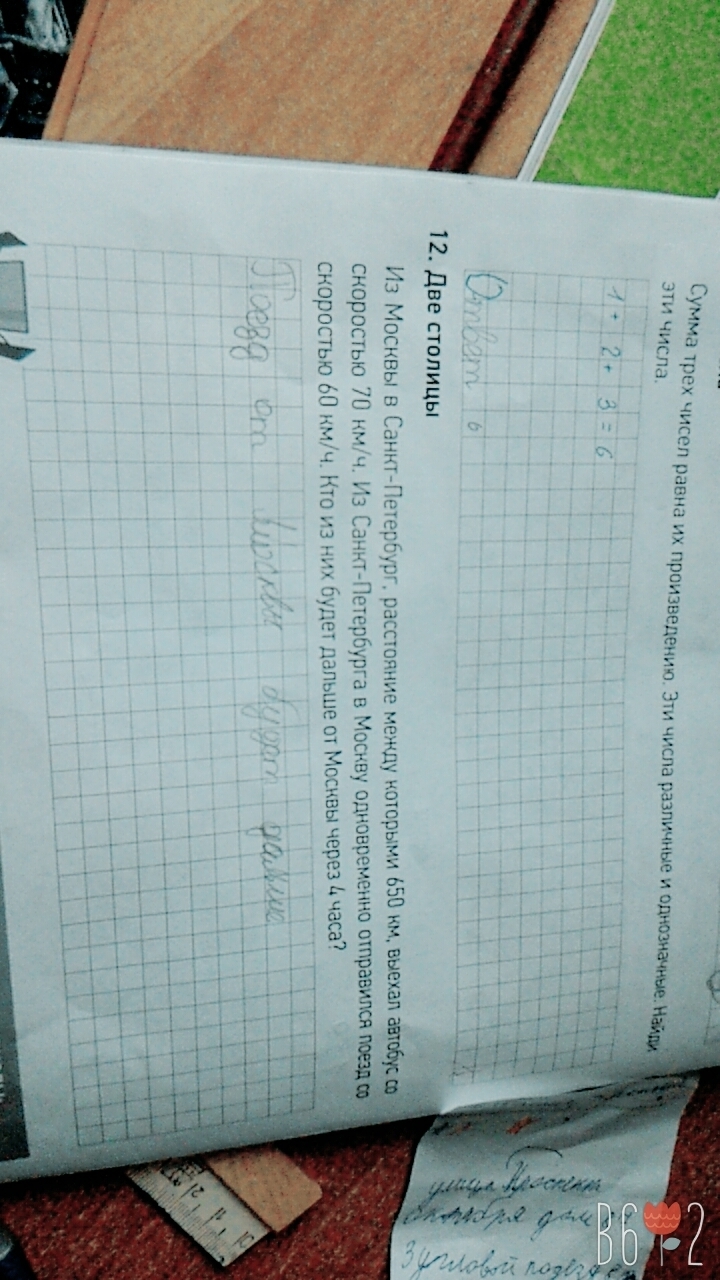 Сумма трех чисел равна их произведению. Эти числа различные и однозначные. Найди
эти числа.
1 + 2 + 3 = 6
Ответ 6
12. Две столицы
Из Москвы в Санкт-Петербург, расстояние между которыми 650 км, выехал автобус со
скоростью 70 км/ч. Из Санкт-Петербурга в Москву одновременно отправился поезд со
скоростью 60 км/ч. Кто из них будет дальше от Москвы через 4 часа?
Поезд от Москвы будет дальше
улица Проспект
октября дом
3 угловой подъезд
B612